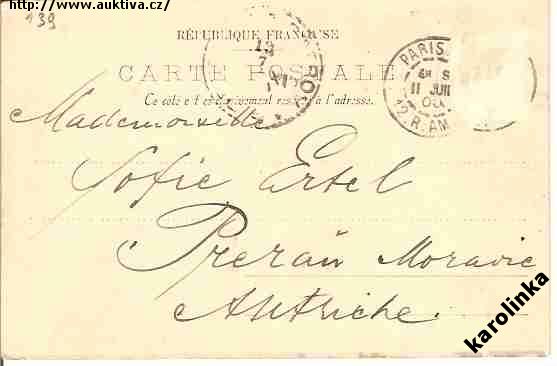 http://www.auktiva.cz/
139
RÉPUBLIQUE FRANÇAISE
CARTE POSTALE
Ce côté est exclusivement réservé à l'adresse.
PARIS
11 JUIL
R. AM
Mademoiselle
Sofie Ertel
Prerau Moravie
Autriche.
karolinka